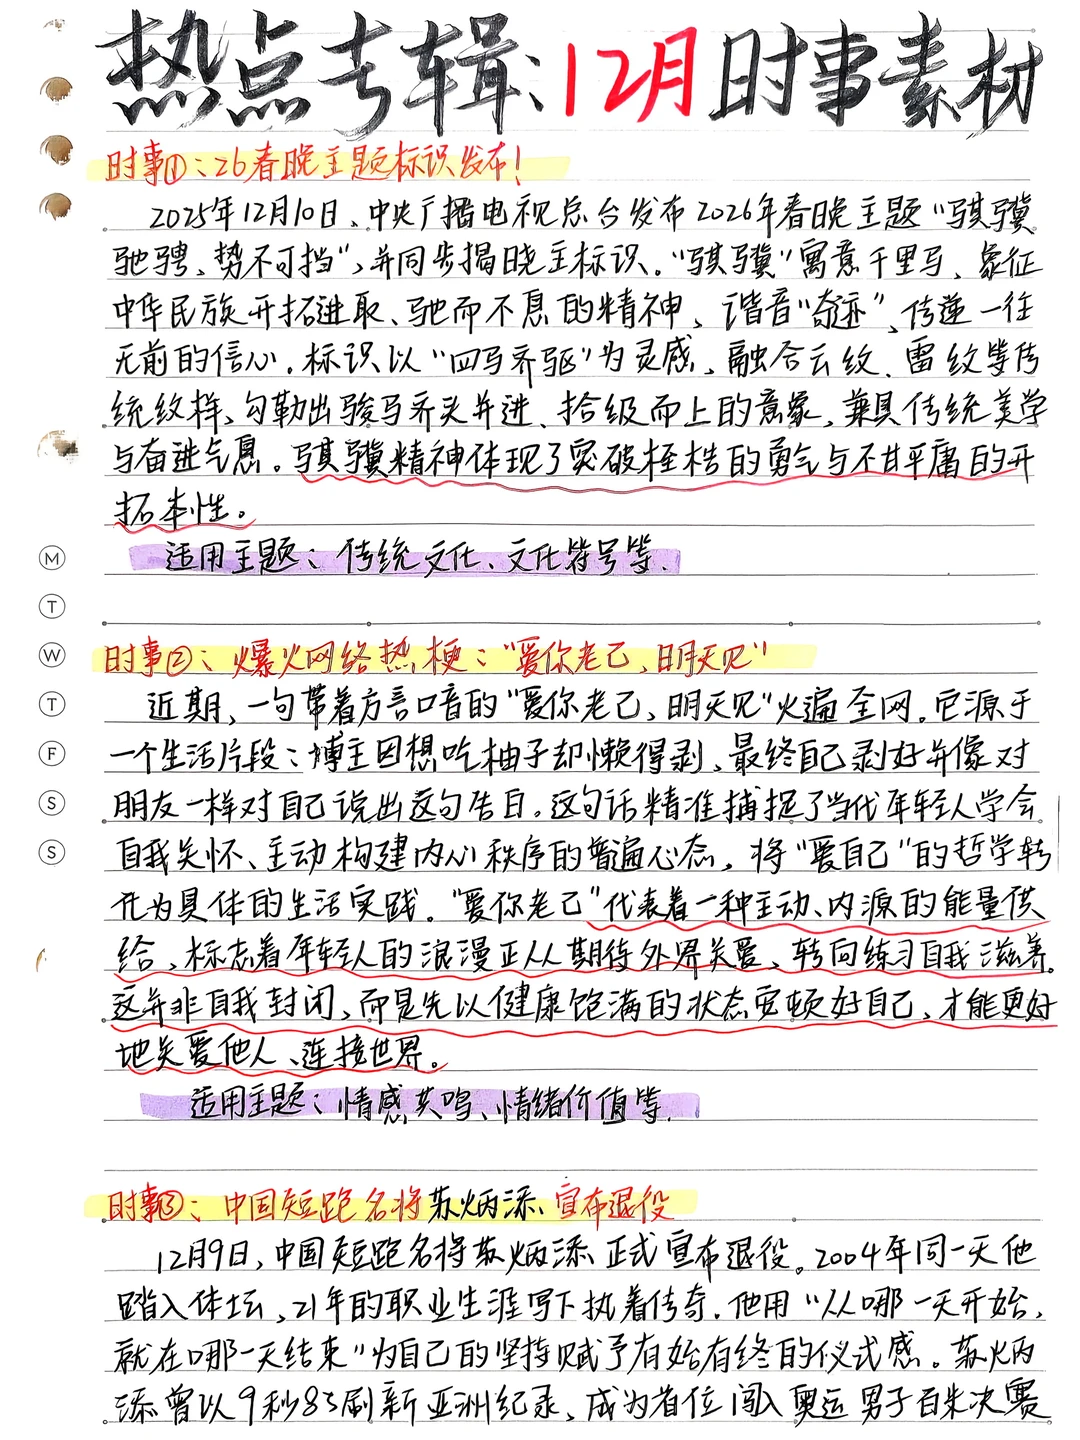 热点专辑:12月时事素材
时事①:26春晚主题标识发布!
2025年12月10日,中央广播电视总台发布2026年春晚主题“骐骥
驰骋、势不可挡”,并同步揭晓主标识。“骐骥”寓意千里马、象征
中华民族开拓进取、驰而不息的精神、谐音“奇迹”、传递一往
无前的信心。标识以“四马齐驱”为灵感,融合云纹、雷纹等传
统纹样,勾勒出骏马齐头并进、拾级而上的意象,兼具传统美学
与奋进气息。骐骥精神体现了突破桎梏的勇气与不甘平庸的开
拓本性。
适用主题:传统文化、文化符号等.
时事②:爆火网络热梗:“爱你老己,明天见”
近期,一句带着方言口音的“爱你老己,明天见”火遍全网。它源于
一个生活片段:博主因想吃柚子却懒得剥、最终自己剥好并像对
朋友一样对自己说出这句告白。这句话精准捕捉了当代年轻人学会
自我关怀、主动构建内心秩序的普遍心态,将“爱自己”的哲学转
化为具体的生活实践。“爱你老己”代表着一种主动、内源的能量供
给、标志着年轻人的浪漫正从期待外界关爱、转向练习自我滋养。
这并非自我封闭,而是先以健康饱满的状态安顿好自己,才能更好
地关爱他人、连接世界。
适用主题:情感共鸣、情绪价值等.
时事③:中国短跑名将苏炳添 宣布退役
12月9日,中国短跑名将苏炳添正式宣布退役。2004年同一天他
踏入体坛,21年的职业生涯写下执着传奇。他用“从哪一天开始,
就在哪一天结束”为自己的坚持赋予有始有终的仪式感。苏炳
添曾以9秒83刷新亚洲纪录、成为首位闯入奥运男子百米决赛
M
T
W
T
F
S
S